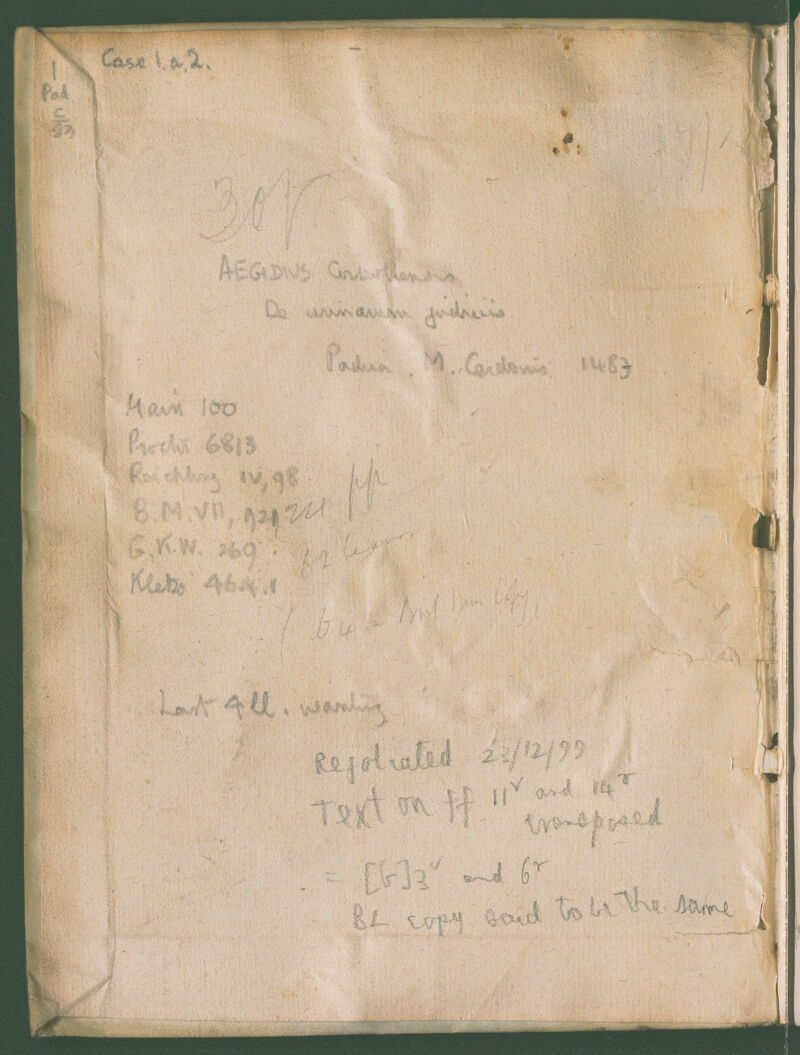 Case 1.a.2.
1
Pad
C
83
AEGIDIUS Corboliensis
De urinarum judiciis
Padua. M. Cerdonis 1483
Hain 100
Proctor 6813
Reichling IV, 98
B.M. VII, 921, pp
G.K.W. 269.
62 leaves
Klebs 464.1
(64 in Brit Mus Copy)
Last 4 ll. wanting
Refoliated 23/12/99
Text on ff 11v and 14r
transposed
= [b]3v and 6r
BL copy said to be the same